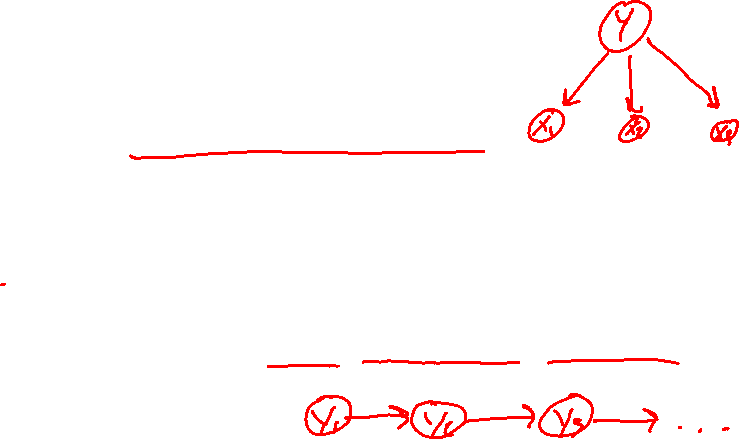 Y
X₁ X₂
Y₁ Y₂ Y₃ ...